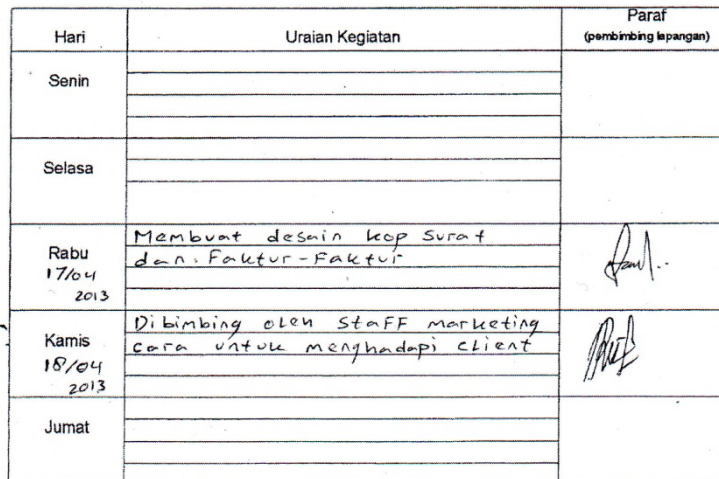 Hari Uraian Kegiatan Paraf
(pembimbing lapangan)
Senin
Selasa
Rabu
17/04
2013
Membuat desain kop surat
dan. Faktur-Faktur
Kamis
18/04
2013
Dibimbing oleh staFF marketing
cara untuk menghadapi client
Jumat